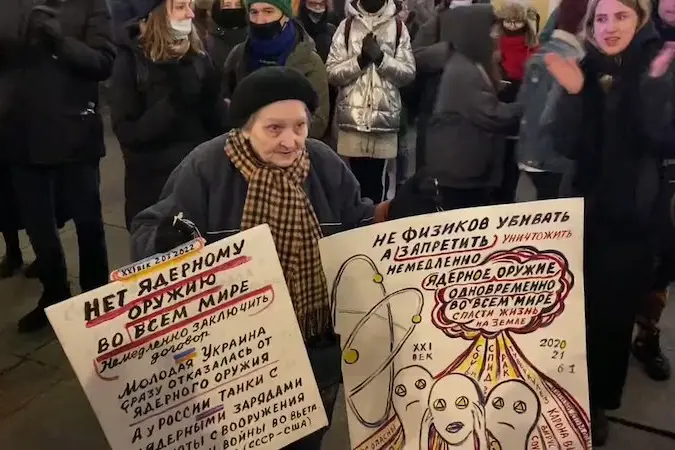 XXI ВЕК 2 03 2022
НЕТ ЯДЕРНОМУ
ОРУЖИЮ
ВО ВСЕМ МИРЕ
НЕМЕДЛЕННО ЗАКЛЮЧИТЬ
ДОГОВОР
МОЛОДАЯ УКРАИНА
СРАЗУ ОТКАЗАЛАСЬ ОТ
ЯДЕРНОГО ОРУЖИЯ
А У РОССИИ ТАНКИ С
ЯДЕРНЫМИ ЗАРЯДАМИ
С ВООРУЖЕНИЯ
И ВОЙНЫ ВО ВЬЕТА
(СССР-США)
НЕ ФИЗИКОВ УБИВАТЬ
А ЗАПРЕТИТЬ УНИЧТОЖИТЬ
НЕМЕДЛЕННО
ЯДЕРНОЕ ОРУЖИЕ
ОДНОВРЕМЕННО
ВО ВСЕМ МИРЕ
СПАСТИ ЖИЗНЬ
НА ЗЕМЛЕ
XXI
ВЕК
2020
21